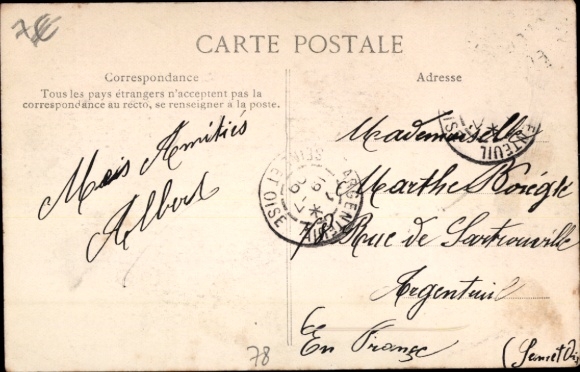 7€
CARTE POSTALE
Correspondance
Tous les pays étrangers n'acceptent pas la
correspondance au recto, se renseigner à la poste.
Adresse
Meis Amitiés
Albert
Mademoiselle
Marthe
78 Rue de Sartrouville
Argenteuil
(Seine et Oise
En France
ARGENTEUIL
SEINE ET OISE
ENTEUIL
78